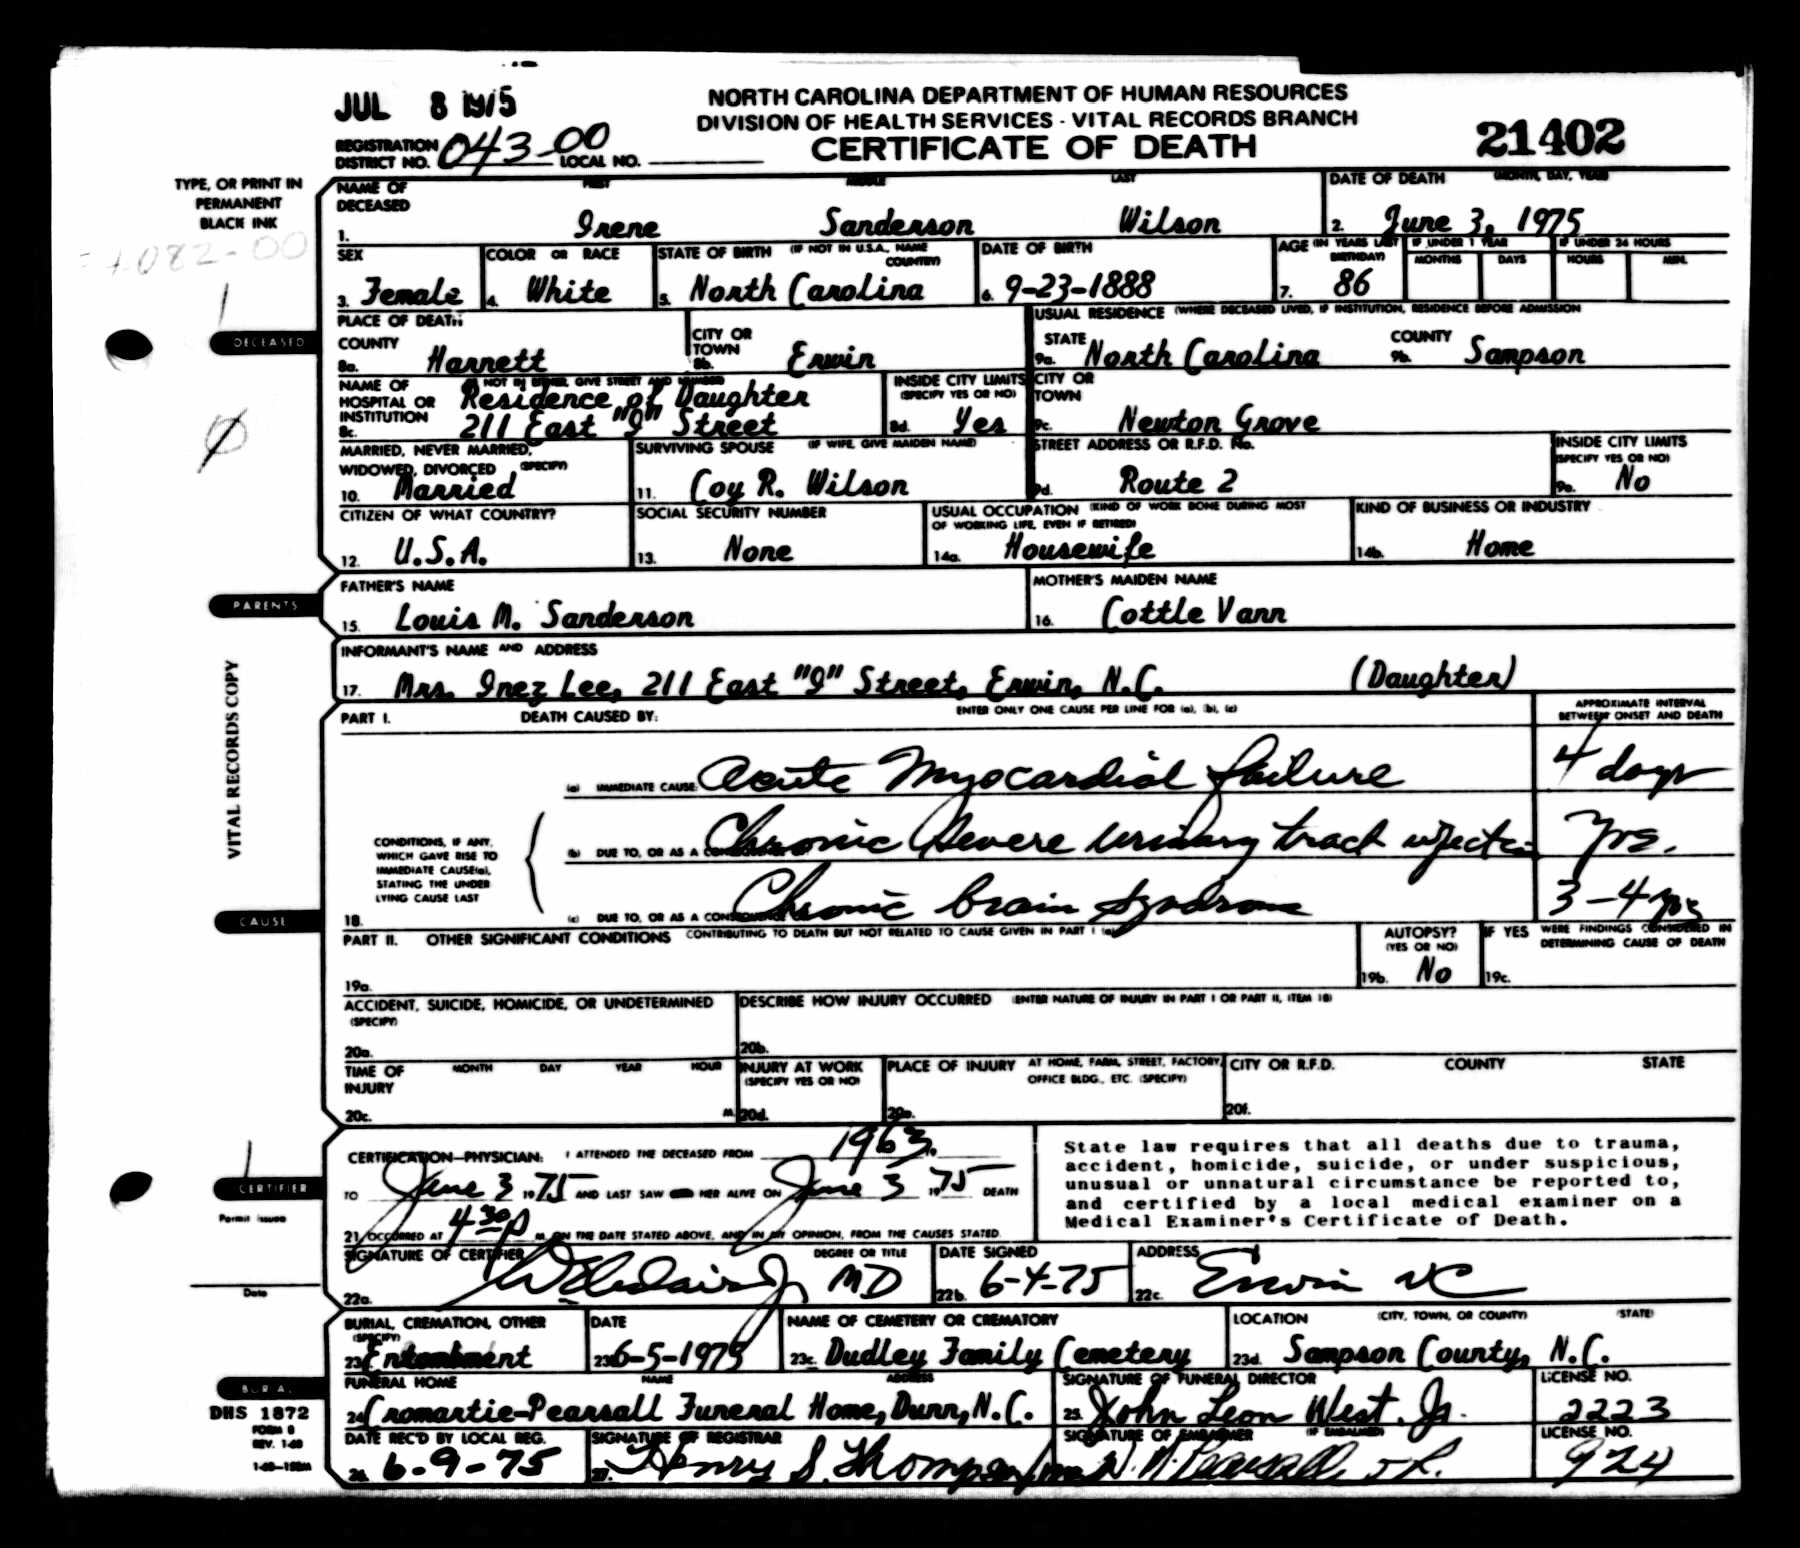 JUL 8 1975
NORTH CAROLINA DEPARTMENT OF HUMAN RESOURCES
DIVISION OF HEALTH SERVICES - VITAL RECORDS BRANCH
CERTIFICATE OF DEATH
21402
REGISTRATION DISTRICT NO. 043-00 LOCAL NO.
TYPE, OR PRINT IN
PERMANENT
BLACK INK
082-00
NAME OF DECEASED FIRST MIDDLE LAST
1. Irene Sanderson Wilson
DATE OF DEATH (MONTH, DAY, YEAR)
2. June 3, 1975
SEX
3. Female
COLOR OR RACE
4. White
STATE OF BIRTH (IF NOT IN U.S.A., NAME COUNTRY)
5. North Carolina
DATE OF BIRTH
6. 9-23-1888
AGE (IN YEARS LAST BIRTHDAY)
7. 86
IF UNDER 1 YEAR
MONTHS DAYS
IF UNDER 24 HOURS
HOURS MIN.
DECEASED
PLACE OF DEATH
COUNTY
8a. Harnett
CITY OR TOWN
8b. Erwin
USUAL RESIDENCE (WHERE DECEASED LIVED, IF INSTITUTION, RESIDENCE BEFORE ADMISSION
STATE
9a. North Carolina
COUNTY
9b. Sampson
NAME OF HOSPITAL OR INSTITUTION (IF NOT IN EITHER, GIVE STREET AND NUMBER)
8c. Residence of Daughter
211 East "I" Street
INSIDE CITY LIMITS (SPECIFY YES OR NO)
8d. Yes
CITY OR TOWN
9c. Newton Grove
MARRIED, NEVER MARRIED, WIDOWED, DIVORCED (SPECIFY)
10. Married
SURVIVING SPOUSE (IF WIFE, GIVE MAIDEN NAME)
11. Coy R. Wilson
STREET ADDRESS OR R.F.D. No.
9d. Route 2
INSIDE CITY LIMITS (SPECIFY YES OR NO)
9e. No
CITIZEN OF WHAT COUNTRY?
12. U.S.A.
SOCIAL SECURITY NUMBER
13. None
USUAL OCCUPATION (KIND OF WORK DONE DURING MOST OF WORKING LIFE, EVEN IF RETIRED)
14a. Housewife
KIND OF BUSINESS OR INDUSTRY
14b. Home
PARENTS
FATHER'S NAME
15. Louis M. Sanderson
MOTHER'S MAIDEN NAME
16. Cottle Vann
INFORMANT'S NAME AND ADDRESS
17. Mrs. Inez Lee, 211 East "I" Street, Erwin, N.C. (Daughter)
VITAL RECORDS COPY
PART I. DEATH CAUSED BY: ENTER ONLY ONE CAUSE PER LINE FOR (a), (b), (c)
APPROXIMATE INTERVAL BETWEEN ONSET AND DEATH
(a) IMMEDIATE CAUSE: Acute Myocardial failure 4 days
CONDITIONS, IF ANY, WHICH GAVE RISE TO IMMEDIATE CAUSE(a), STATING THE UNDER LYING CAUSE LAST
(b) DUE TO, OR AS A CONSEQUENCE OF: Chronic Severe urinary tract infection yrs.
18. (c) DUE TO, OR AS A CONSEQUENCE OF: Chronic brain syndrome 3-4 yrs
CAUSE
PART II. OTHER SIGNIFICANT CONDITIONS CONTRIBUTING TO DEATH BUT NOT RELATED TO CAUSE GIVEN IN PART I (a)
19a.
AUTOPSY? (YES OR NO)
19b. No
IF YES WERE FINDINGS CONSIDERED IN DETERMINING CAUSE OF DEATH
19c.
ACCIDENT, SUICIDE, HOMICIDE, OR UNDETERMINED (SPECIFY)
20a.
DESCRIBE HOW INJURY OCCURRED (ENTER NATURE OF INJURY IN PART I OR PART II, ITEM 18)
20b.
TIME OF INJURY MONTH DAY YEAR HOUR
20c. M.
INJURY AT WORK (SPECIFY YES OR NO)
20d.
PLACE OF INJURY AT HOME, FARM, STREET, FACTORY, OFFICE BLDG., ETC. (SPECIFY)
20e.
CITY OR R.F.D. COUNTY STATE
20f.
CERTIFIER
Permit Issued
Date
CERTIFICATION—PHYSICIAN: I ATTENDED THE DECEASED FROM 1963
TO June 3 1975 AND LAST SAW HER ALIVE ON June 3 1975 DEATH
21. OCCURRED AT 4 30 P M. ON THE DATE STATED ABOVE, AND IN MY OPINION, FROM THE CAUSES STATED.
State law requires that all deaths due to trauma,
accident, homicide, suicide, or under suspicious,
unusual or unnatural circumstance be reported to,
and certified by a local medical examiner on a
Medical Examiner's Certificate of Death.
SIGNATURE OF CERTIFIER DEGREE OR TITLE
22a. Jr MD
DATE SIGNED
22b. 6-4-75
ADDRESS
22c. Erwin NC
BURIAL, CREMATION, OTHER (SPECIFY)
23a. Entombment
DATE
23b. 6-5-1975
NAME OF CEMETERY OR CREMATORY
23c. Dudley Family Cemetery
LOCATION (CITY, TOWN, OR COUNTY) (STATE)
23d. Sampson County, N.C.
BURIAL
FUNERAL HOME NAME ADDRESS
24. Cromartie-Pearsall Funeral Home, Dunn, N.C.
SIGNATURE OF FUNERAL DIRECTOR
25. John Leon West, Jr.
LICENSE NO.
2223
DHS 1872
FORM 8
REV. 1-68
DATE REC'D BY LOCAL REG.
26. 6-9-75
SIGNATURE OF REGISTRAR
27. Henry S. Thompson
SIGNATURE OF EMBALMER (IF EMBALMED)
Pearsall, Jr.
LICENSE NO.
924